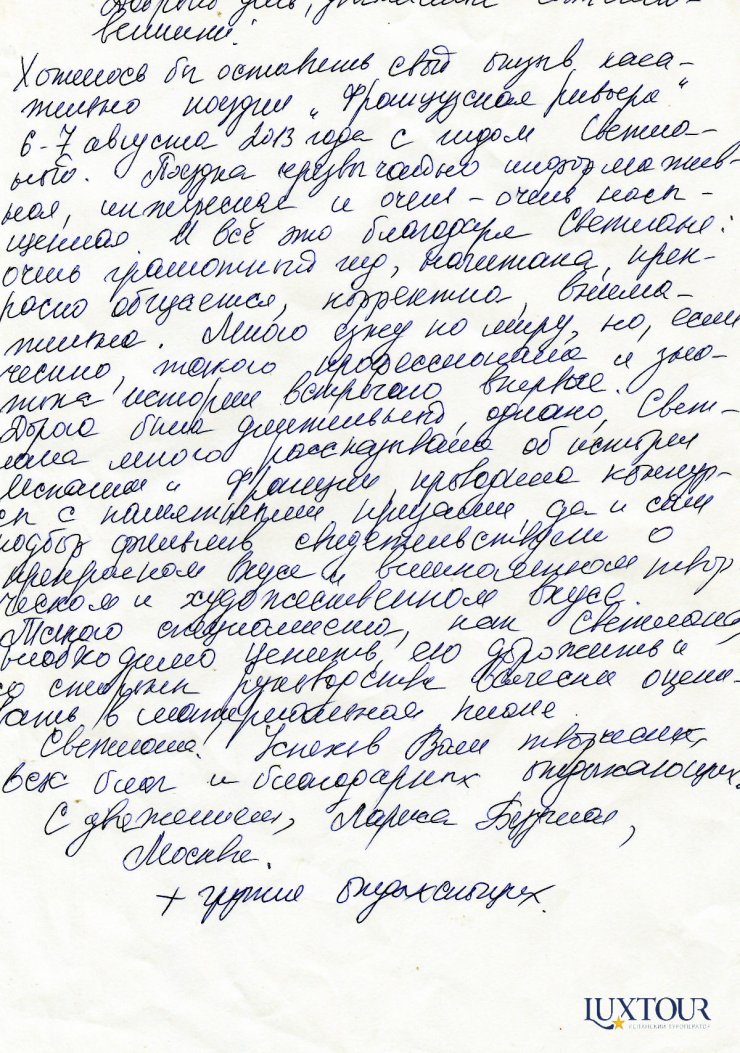 Добрый день, уважаемые
Хотелось бы оставить свой отзыв каса-
тельно поездки „Французская ривьера"
6-7 августа 2013 года с гидом Светла-
ной. Поездка чрезвычайно информатив-
ная, интересная и очень-очень насы-
щенная. И всё это благодаря Светлане:
очень грамотный гид, начитана, прек-
расно общается, корректна, внима-
тельна. Много езжу по миру, но, если
честно, такого профессионала и зна-
тока истории встречаю впервые.
Дорога была длительной, однако, Свет-
лана много рассказывала об истории
Испании и Франции, проводила конкур-
сы с памятными призами, да и сам
подбор фильмов свидетельствует о
прекрасном вкусе и твор
ческом и художественном вкусе.
Такого специалиста, как Светлана,
необходимо ценить, его дорожить и
со стороны руководства всячески оцени-
вать в материальном плане.
Светлана! Успехов Вам творческих,
всех благ и благодарных отдыхающих.
С уважением, Лариса
Москва.
+ группа отдыхающих.
LUXTOUR
ИСПАНСКИЙ ТУРОПЕРАТОР